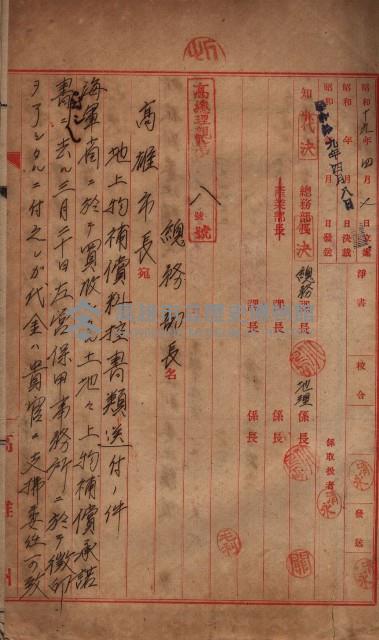 昭和十九年四月 日立案
昭和 年 月 日決裁
昭和十九年四月八日發送
淨書
校合
發送
係取扱者
知事 代決
總務部長 代決
總務課長
地理係長
產業部長
課長
係長
課長
係長
高總理親
八號
總務部長名
高雄市長宛
地上物補償料控書類送付ノ件
海軍省ニ於テ買收 土地々上物補償承諾
書ニ去ル三月三十日左營保甲事務所ニ於テ徵印
ヲ了シタルニ付之レガ代金ハ貴官ニ支拂委任可致